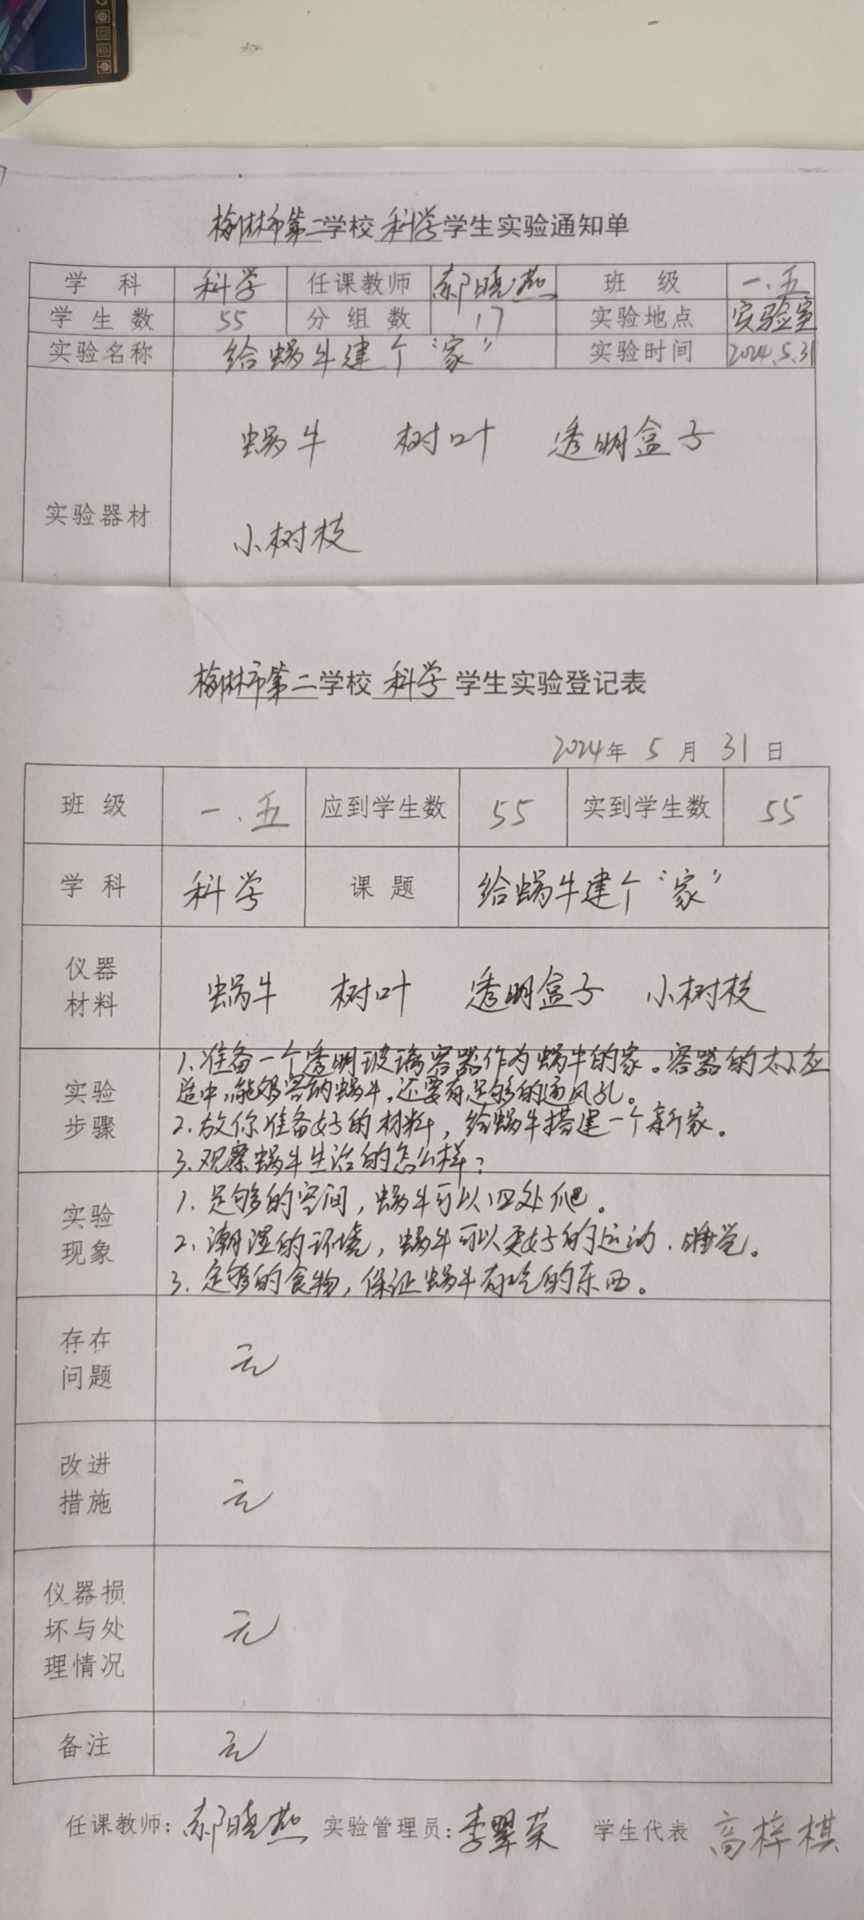 榆林市第二学校 科学 学生实验通知单
学 科 科学 任课教师 郝晓燕 班 级 一.五
学 生 数 55 分 组 数 17 实验地点 实验室
实验名称 给蜗牛建个“家” 实验时间 2024.5.31
蜗牛 树叶 透明盒子
实验器材
小树枝
榆林市第二学校 科学 学生实验登记表
2024年 5 月 31 日
班 级 一.五 应到学生数 55 实到学生数 55
学 科 科学 课 题 给蜗牛建个“家”
仪器
材料
蜗牛 树叶 透明盒子 小树枝
实验
步骤
1.准备一个透明玻璃容器作为蜗牛的家。容器的大小应
适中,能够容纳蜗牛,还要有足够的通风孔。
2.放你准备好的材料,给蜗牛搭建一个新家。
3.观察蜗牛生活的怎么样?
实验
现象
1.足够的空间,蜗牛可以四处爬。
2.潮湿的环境,蜗牛可以更好的运动.睡觉。
3.足够的食物,保证蜗牛有吃的东西。
存在
问题
无
改进
措施
无
仪器损
坏与处
理情况
无
备注
无
任课教师:郝晓燕 实验管理员:李翠荣 学生代表 高梓棋